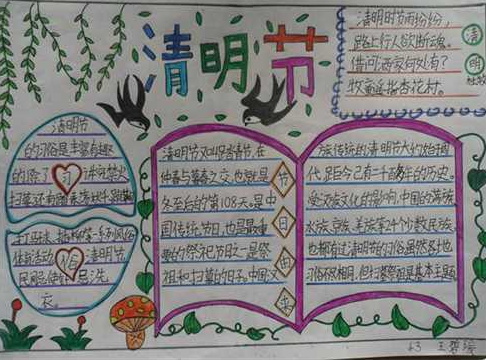 清明节
清明时节雨纷纷，
路上行人欲断魂。
借问酒家何处有？
牧童遥指杏花村。
清
明
杜牧
清明节
的习俗是丰富有趣
的除了
习
讲究禁火
扫墓还有踏青、荡秋千、蹴鞠
打马球、插柳等一系列风俗
体育活动
俗
清明节，
民间忌使针，忌洗
衣。
清明节又叫踏青节，在
仲春与暮春之交，也就是
冬至后的第108天。是中
国传统节日，也是最重
要的祭祀节日之一，是祭
祖和扫墓的日子。中国汉
节
日
由
来
族传统的清明节大约始于周
代，距今已有二千五百多年的历史。
受汉族文化的影响，中国的满族、
水族、京族、羌族等24个少数民族，
也都有过清明节的习俗。虽然各地
习俗不尽相同，但扫墓祭祖是基本主题